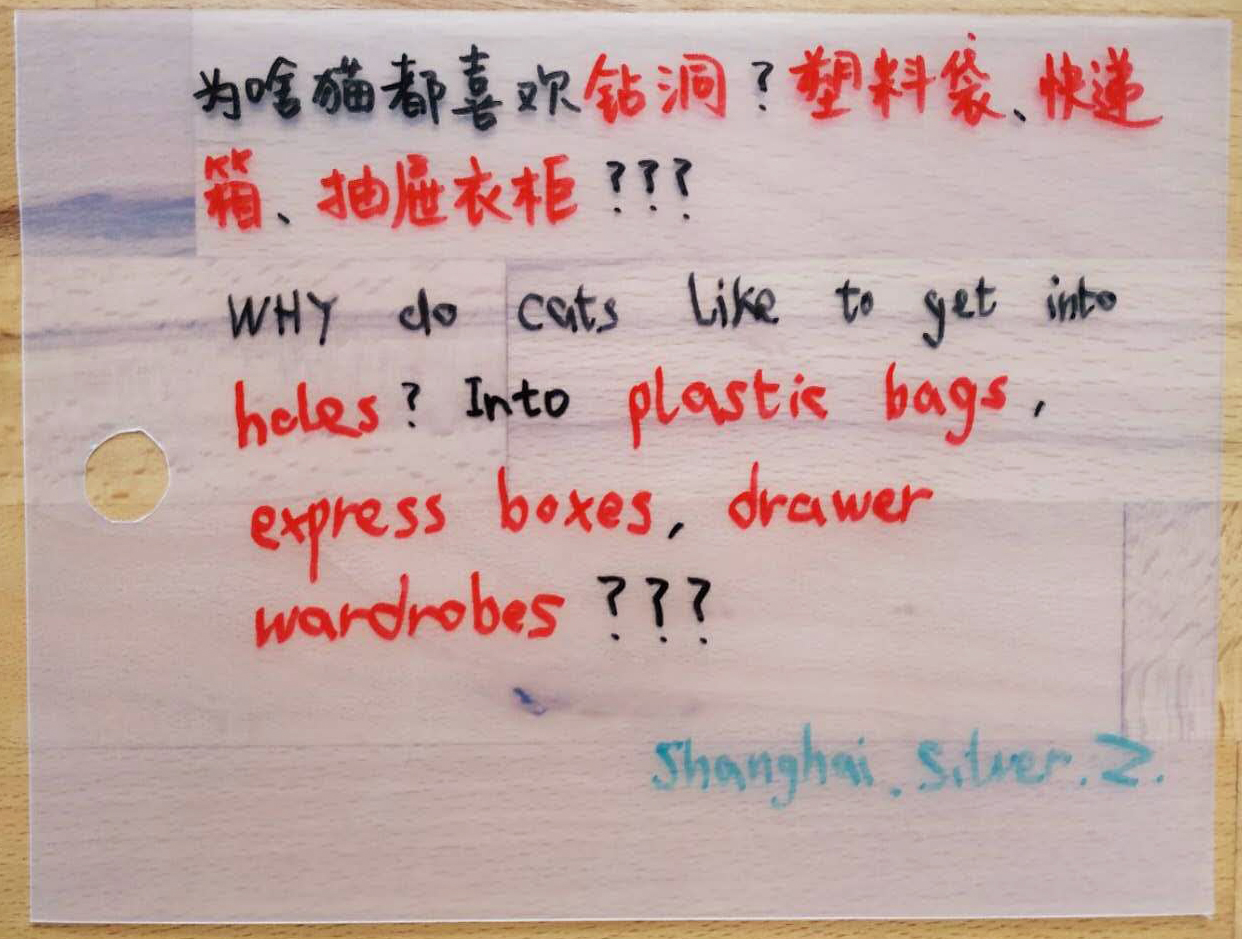 为啥猫都喜欢钻洞？塑料袋、快递
箱、抽屉衣柜？？？
WHY do cats like to get into
holes? Into plastic bags,
express boxes, drawer
wardrobes ???
Shanghai. Silver. Z.